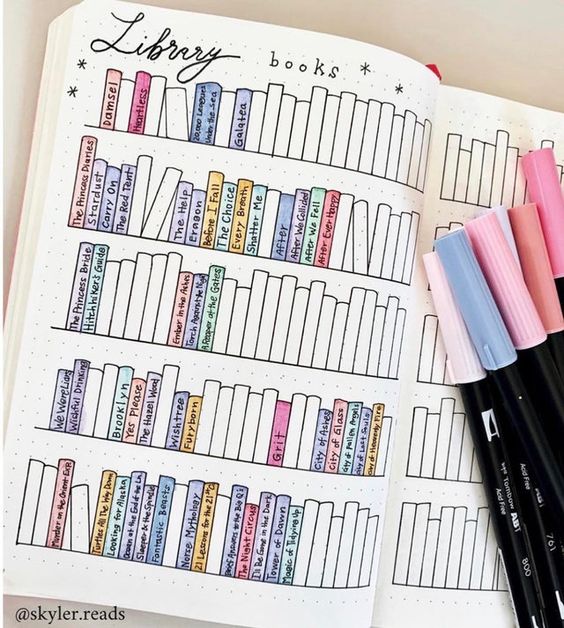 Library
books
Damsel
Heartless
20,000 Leagues
Under the Sea
Galatea
The Princess Diaries
Stardust
Carry On
The Red Tent
The Help
Eragon
Before I Fall
The Choice
Every Breath
Shatter Me
After
After We Collided
After We Fell
After Ever Happy
The Princess Bride
Hitchhiker's Guide
Ember in the Ashes
Torch Against the Night
A Reaper at the Gates
We Were Liars
Wishful Drinking
Brooklyn
Yes Please
The Hazel Wood
Wishtree
Furyborn
Grit
City of Ashes
City of Glass
City of Fallen Angels
City of Lost Souls
City of Heavenly Fire
Murder on the Orient Exp.
Turtles All The Way Down
Looking for Alaska
Ocean at the End of the Ln
Sleeper & the Spindle
Fantastic Beasts
Norse Mythology
21 Lessons for the 21st C
Brief Answers to the Big Q's
The Night Circus
I'll Be Gone in the Dark
Tower of Dawn
Magic of Tidying Up
Acid Free
Tombow ABT
800
Acid Free
761
@skyler.reads